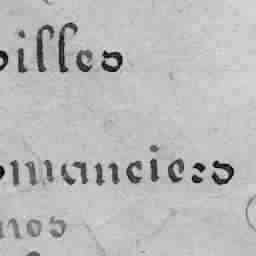 oilles
omanciers
nos